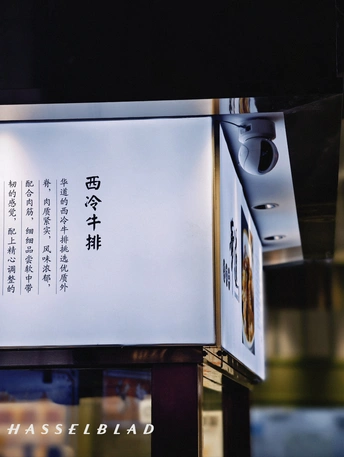 西冷牛排
华道的西冷牛排挑选优质外
脊，肉质紧实，风味浓郁，
配合肉筋，细细品尝软中带
韧的感觉，配上精心调整的
HASSELBLAD